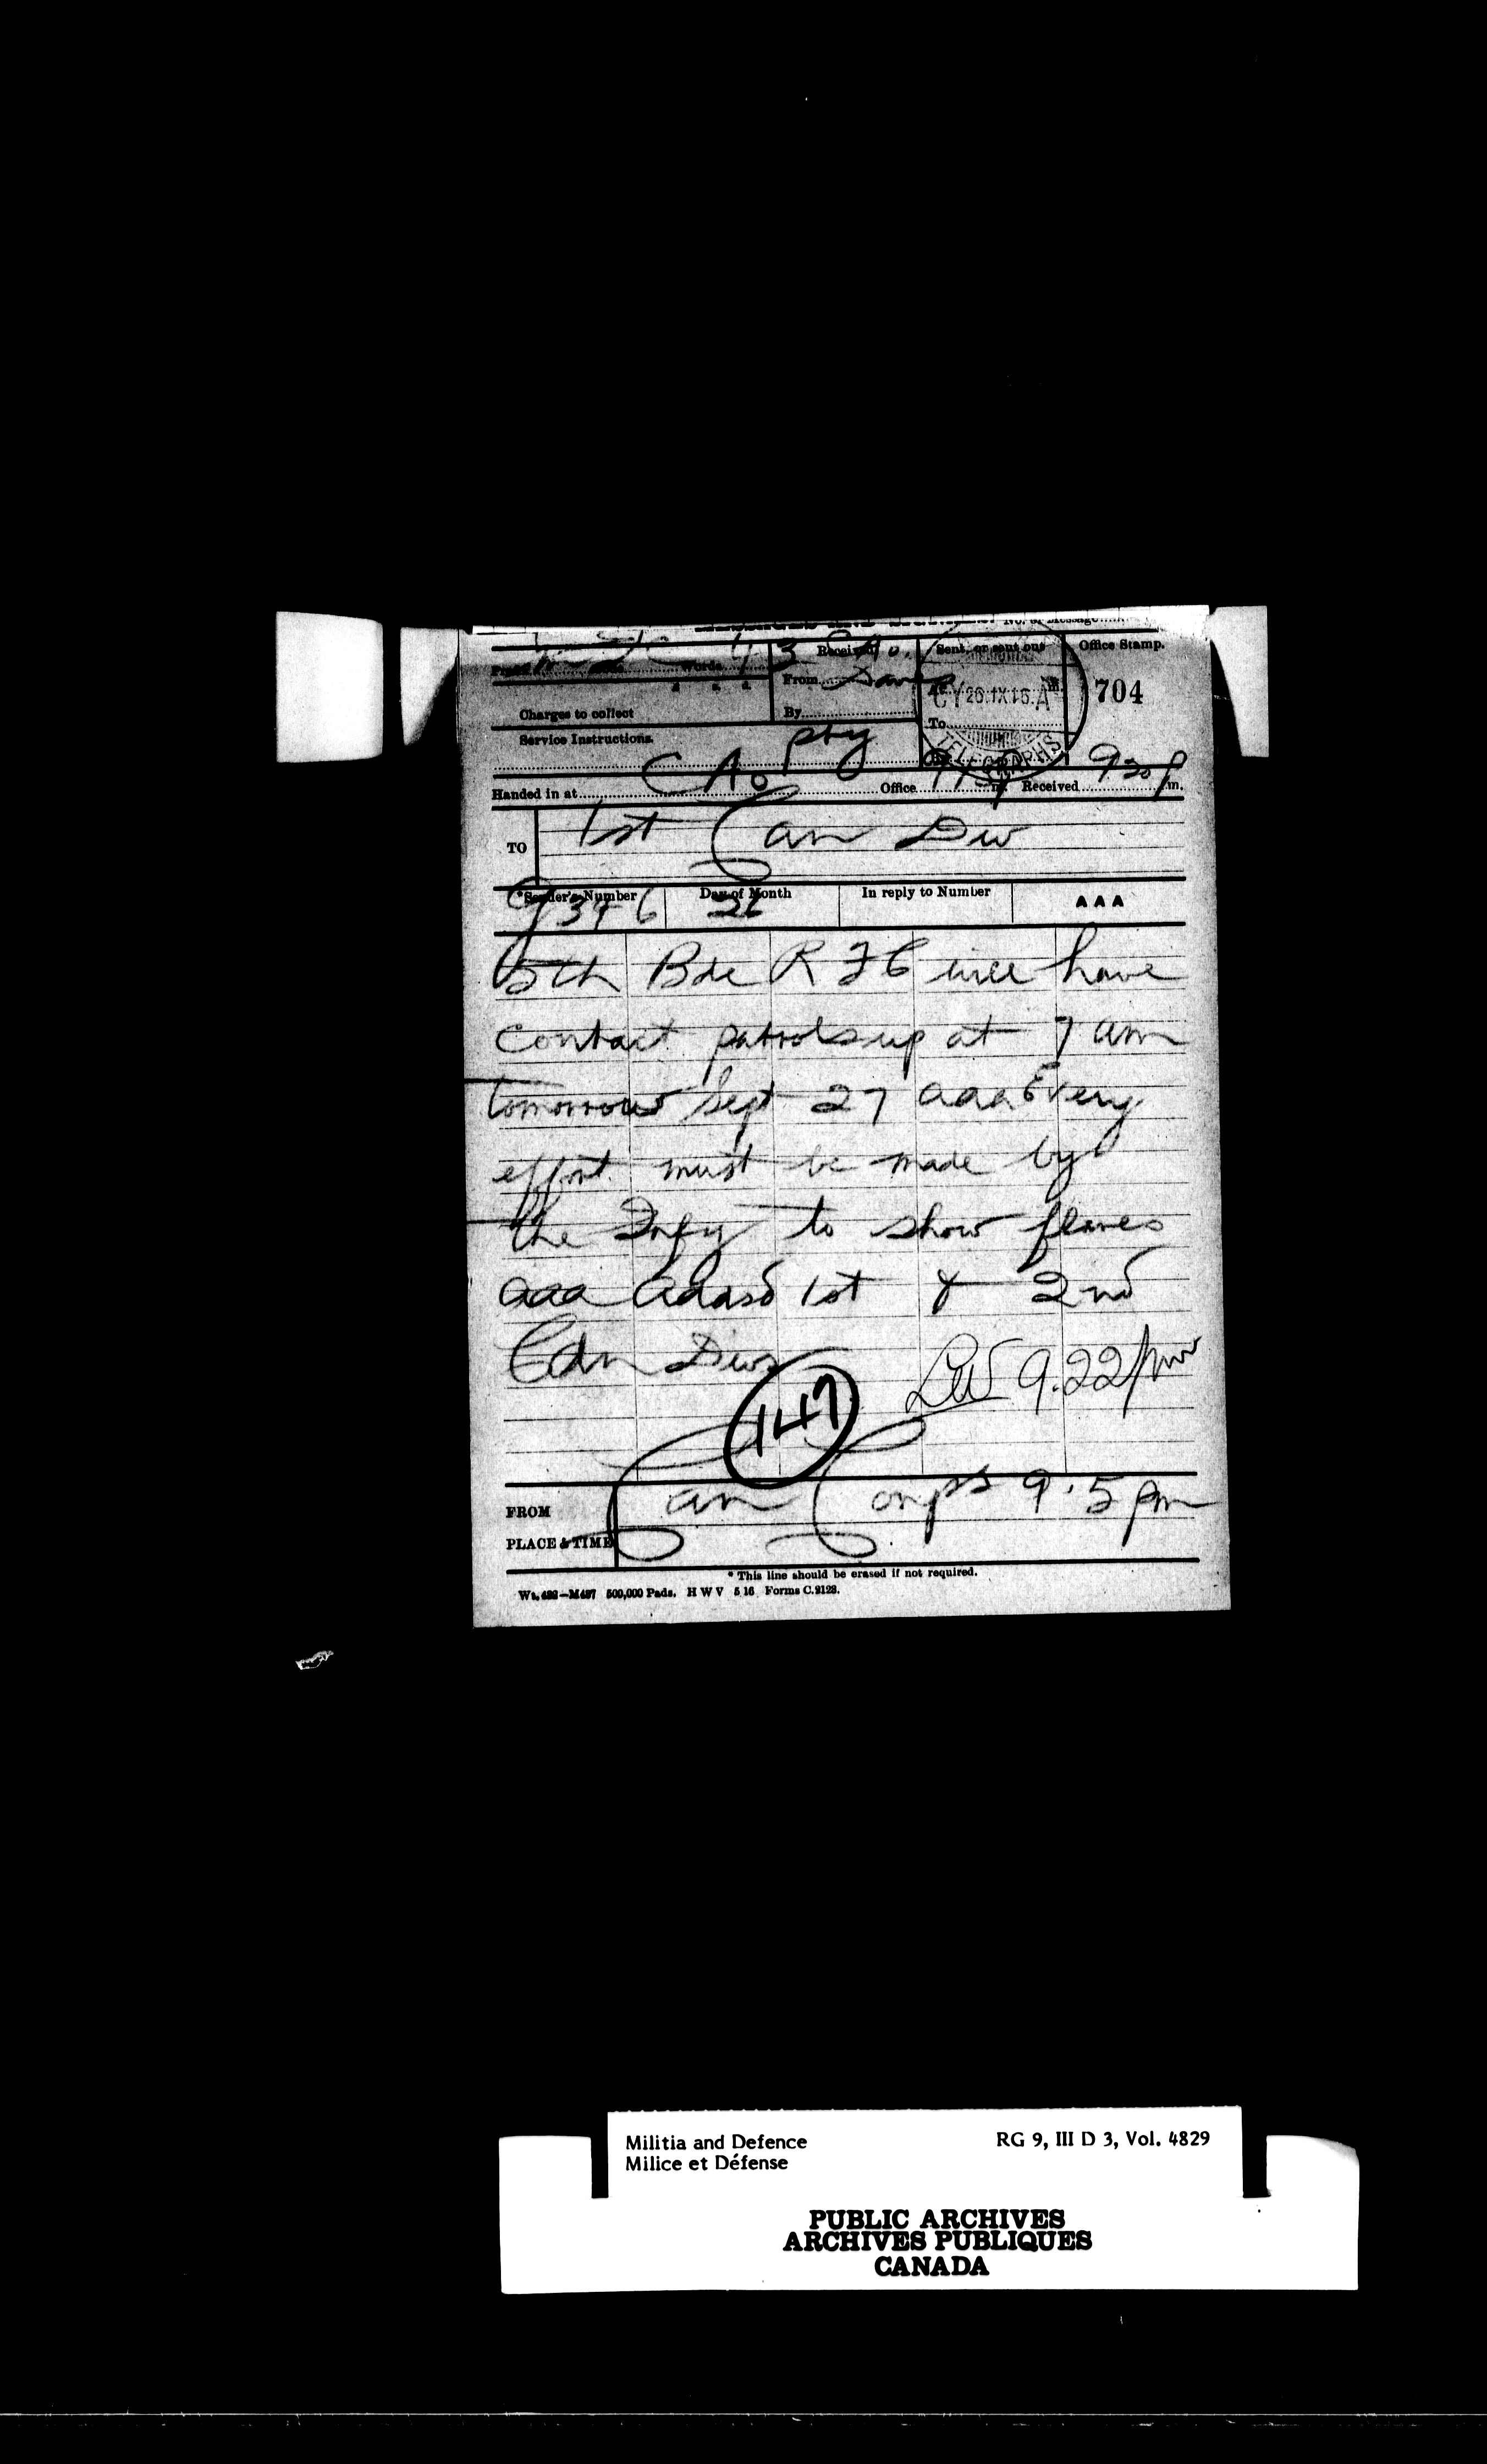 No. of Message
Words 43 Received Sent, or sent out Office Stamp.
From
CY 26.IX.16.A 704
Charges to collect By To
Service Instructions. pty TELEGRAPHS
Handed in at CAo Office m. Received 9 30 p m.
TO 1st Can Div
*Sender's Number Day of Month In reply to Number AAA
G346 26
5th Bde R F C will have
contact patrols up at 7 am
tomorrow Sept 27 aaa Every
effort must be made by
the Infy to show flares
aaa Addsd 1st & 2nd
Cdn Divs
9.22 pm
147
FROM Can Corps 9.5 pm
PLACE & TIME
* This line should be erased if not required.
500,000 Pads. H W V 5 16 Forms C.2123.
Militia and Defence RG 9, III D 3, Vol. 4829
Milice et Défense
PUBLIC ARCHIVES
ARCHIVES PUBLIQUES
CANADA